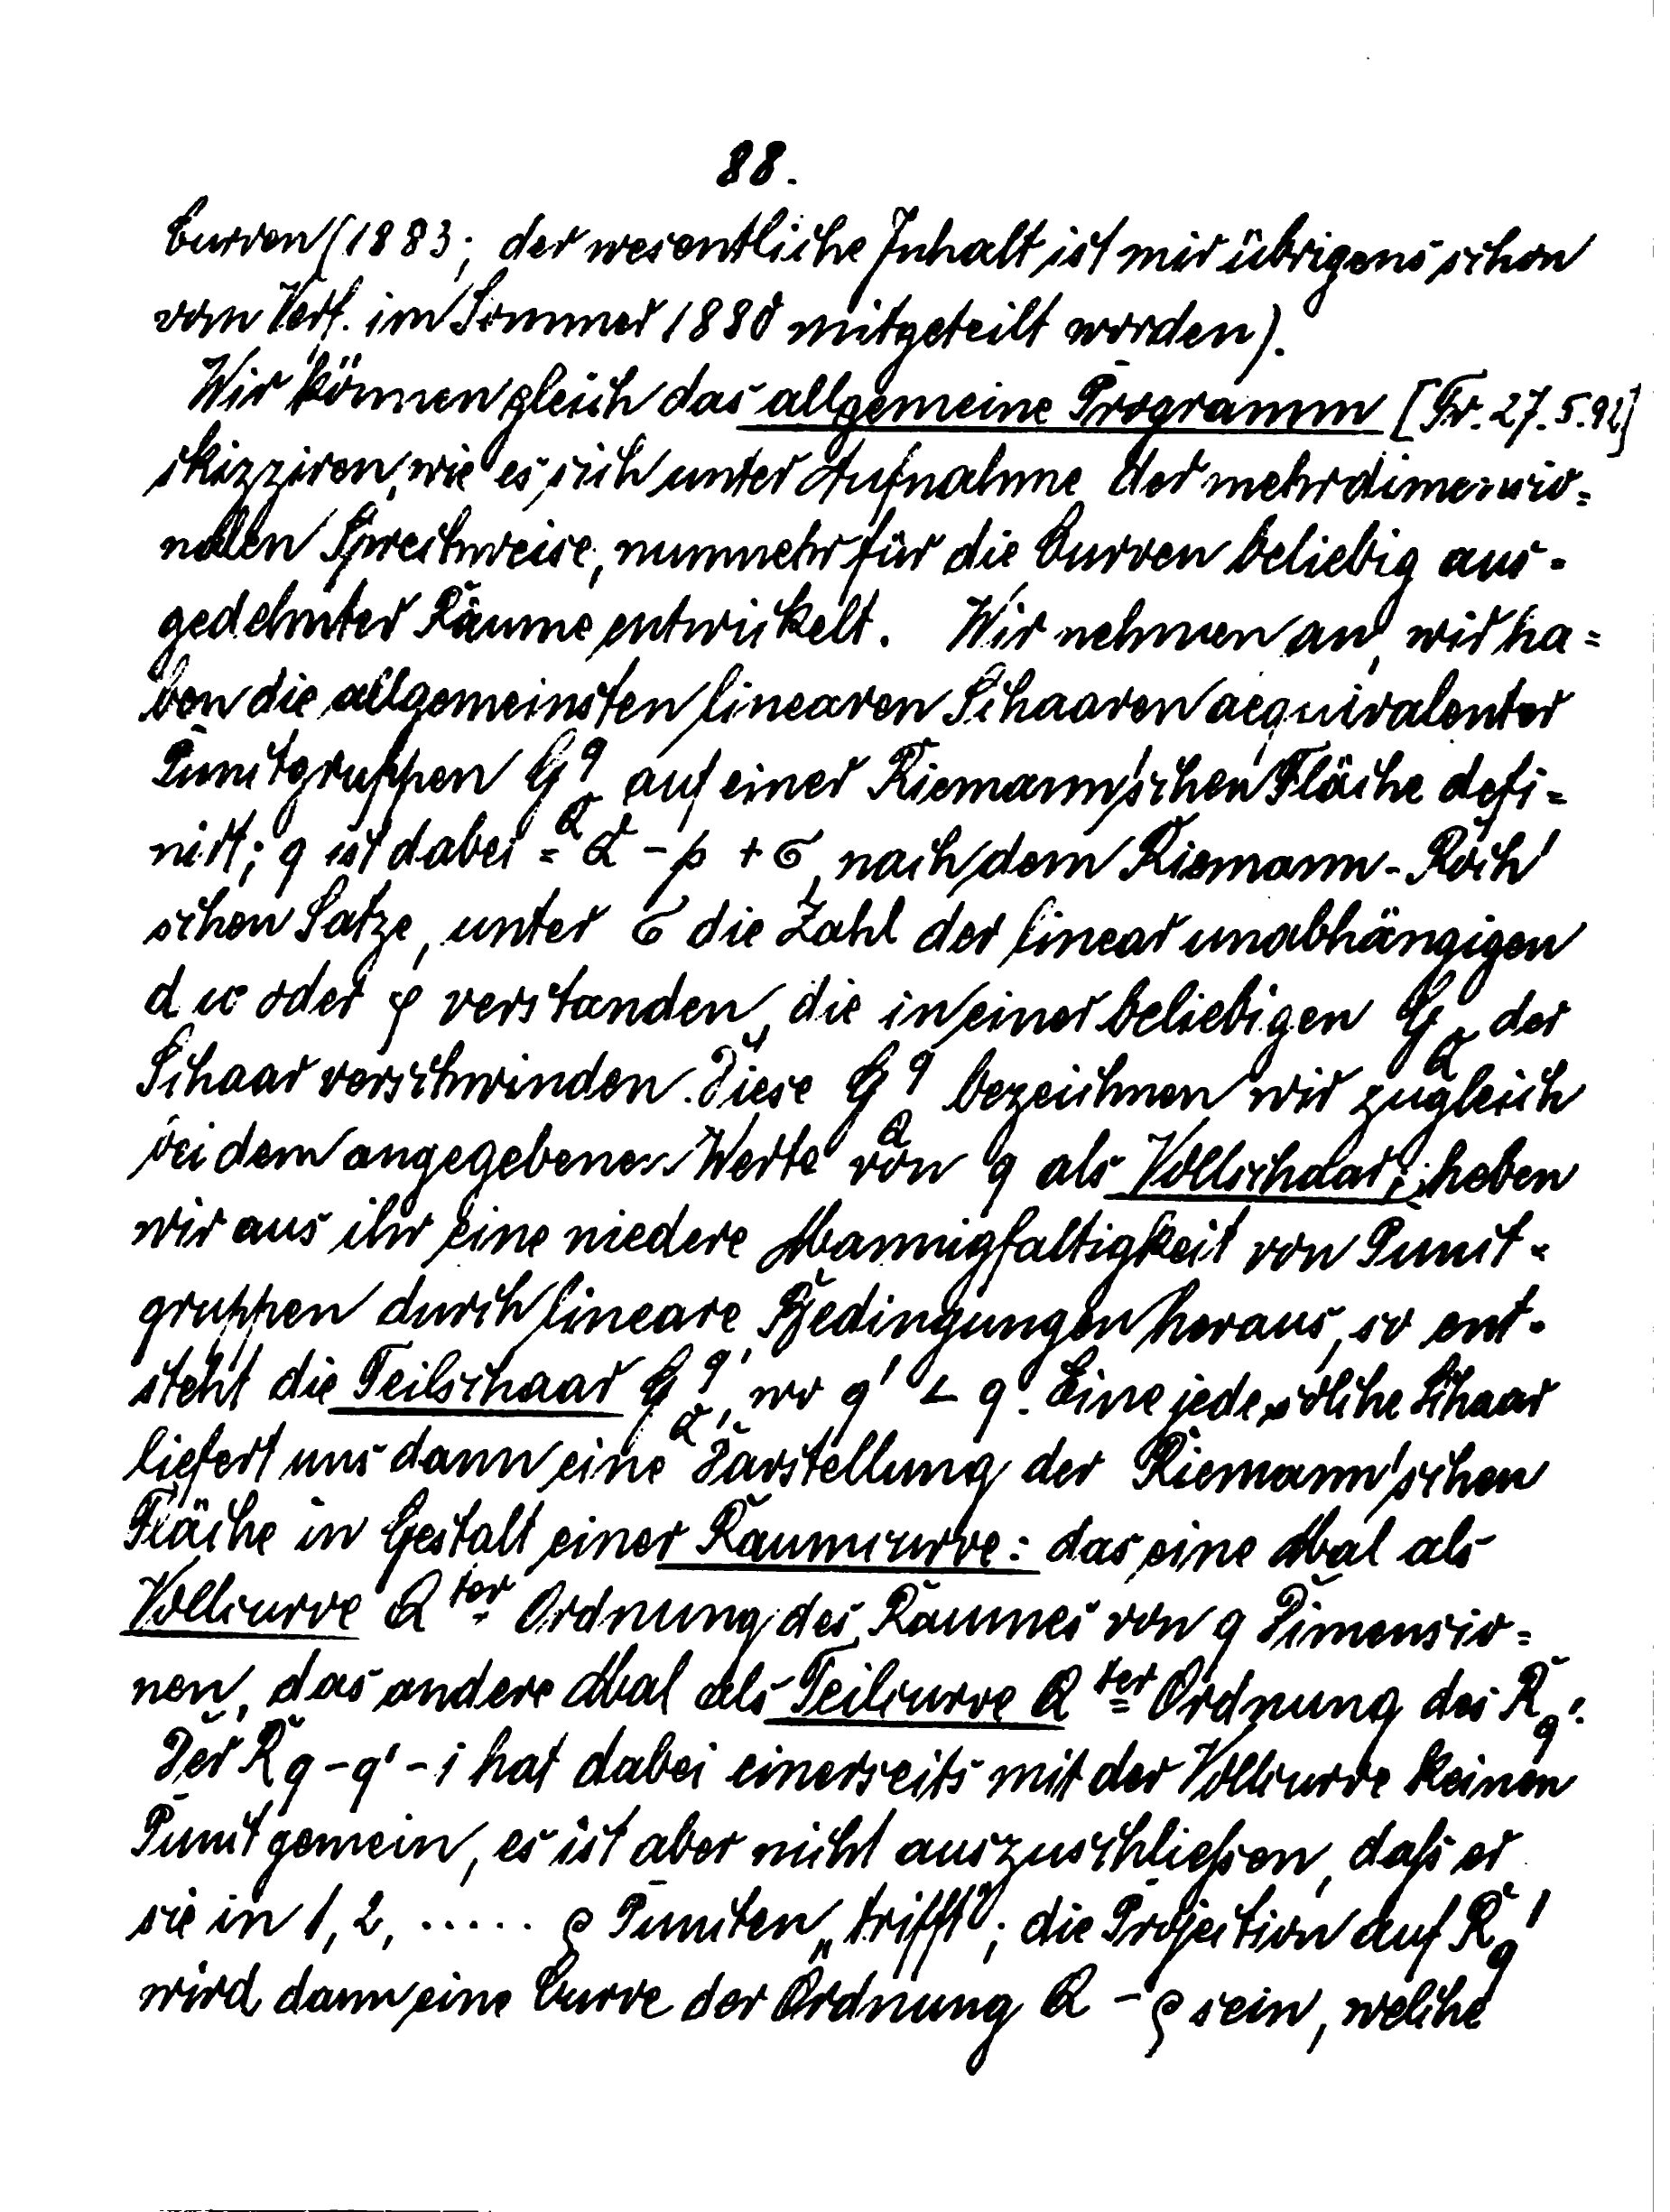 88.
Curven (1883; der wesentliche Inhalt ist mir übrigens schon
vom Verf. im Sommer 1880 mitgeteilt worden).
Wir können gleich das allgemeine Programm [Fr. 27.5.92]
skizziren, wie es sich unter Aufnahme der mehrdimensio=
nalen Sprechweise, nunmehr für die Curven beliebig aus-
gedehnter Räume entwickelt. Wir nehmen an, wir ha=
ben die allgemeinsten linearen Schaaren aequivalenter
Punctgruppen G_Q^q auf einer Riemann'schen Fläche defi=
nirt; q ist dabei = Q - p + σ, nach dem Riemann-Roch'
schen Satze, unter σ die Zahl der linear unabhängigen
dw oder φ verstanden, die in einer beliebigen G_Q der
Schaar verschwinden. Diese G_Q^q bezeichnen wir zugleich
bei dem angegebenen Werte von q als Vollschaar; heben
wir aus ihr eine niedere Mannigfaltigkeit von Punct-
gruppen durch lineare Bedingungen heraus, so ent-
steht die Teilschaar G_Q^q', wo q' < q. Eine jede solche Schaar
liefert uns dann eine Darstellung der Riemann'schen
Fläche in Gestalt einer Raumcurve: das eine Mal als
Vollcurve Q ter Ordnung des Raumes von q Dimensio=
nen, das andere Mal als Teilcurve Q ter Ordnung des R_q'.
Der R_q-q'-1 hat dabei einerseits mit der Vollcurve keinen
Punct gemein, es ist aber nicht auszuschließen, daß er
sie in 1, 2, ..... ρ Puncten „trifft"; die Projection auf R_q'
wird dann eine Curve der Ordnung Q - ρ sein, welche